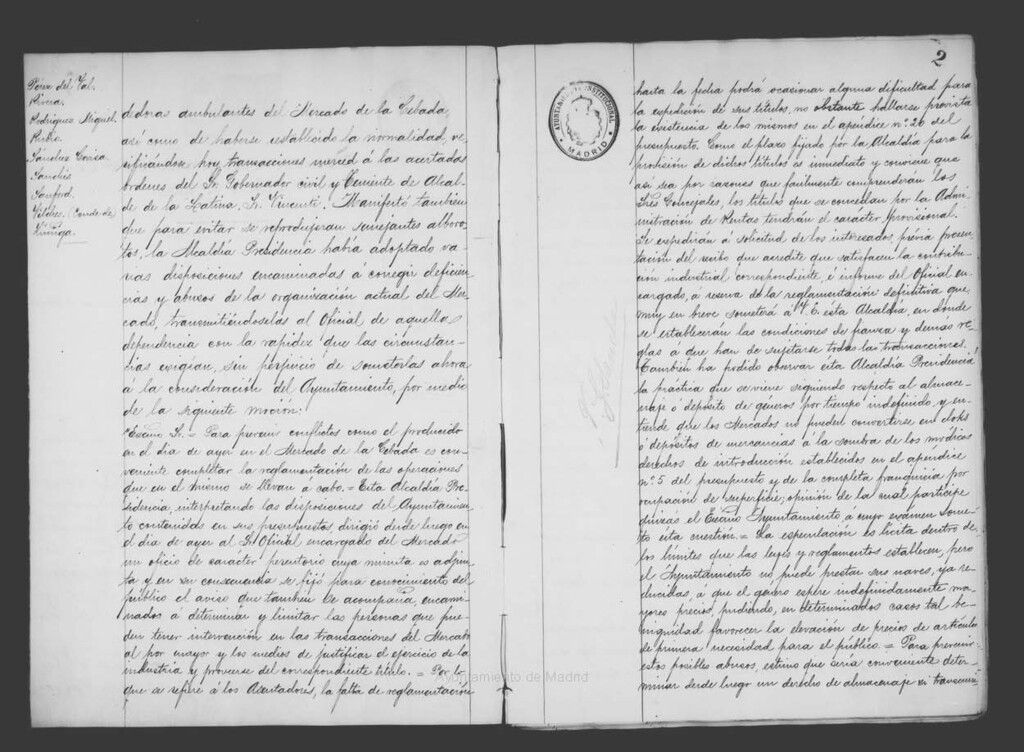 Pérez del Val.
Rivera.
Rodríguez Miguel.
Rubio.
Sánchez Covisa.
Sanchis
Sanford.
Vilches (Conde de)
Zúñiga.
dedoras ambulantes del Mercado de la Cebada,
así como de haberse establecido la normalidad, ve-
rificándose hoy transacciones merced á las acertadas
órdenes del Sr. Gobernador civil y Teniente de Alcal-
de de la Latina, Sr. Vincenti. Manifestó también
que para evitar se reprodujeran semejantes alboro-
tos, la Alcaldía Presidencia había adoptado va-
rias disposiciones encaminadas á corregir deficien-
cias y abusos de la organización actual del Mer-
cado, transmitiéndoselas al Oficial de aquella
dependencia con la rapidez que las circunstan-
cias exigían, sin perjuicio de someterlas ahora
á la consideración del Ayuntamiento, por medio
de la siguiente moción:
"Excmo Sr. = Para prevenir conflictos como el producido
en el día de ayer en el Mercado de la Cebada es con-
veniente completar la reglamentación de las operaciones
que en el mismo se llevan á cabo. = Esta Alcaldía Pre-
sidencia, interpretando las disposiciones del Ayuntamien-
to contenidas en sus presupuestos, dirigió desde luego en
el día de ayer al Sr. Oficial encargado del Mercado
un oficio de carácter perentorio cuya minuta es adjun-
ta y en su consecuencia se fijó para conocimiento del
público el aviso que también se acompaña, encami-
nados á determinar y limitar las personas que pue-
den tener intervención en las transacciones del Mercado
al por mayor y los medios de justificar el ejercicio de la
industria y proveerse del correspondiente título. = Por lo
que se refiere á los Asentadores, la falta de reglamentación
2
AYUNTAMIENTO CONSTITUCIONAL
MADRID
hasta la fecha podrá ocasionar alguna dificultad para
la expedición de sus títulos, no obstante hallarse prevista
la existencia de los mismos en el apéndice nº 26 del
presupuesto. Como el plazo fijado por la Alcaldía para la
provisión de dichos títulos es inmediato y conviene que
así sea por razones que facilmente comprenderán los
Sres Concejales, los títulos que se concedan por la Admi-
nistración de Rentas tendrán el carácter provisional.
Se expedirán á solicitud de los interesados, previa presen-
tación del recibo que acredite que satisfacen la contribu-
ción industrial correspondiente, é informe del Oficial en-
cargado, á reserva de la reglamentación definitiva que
muy en breve someterá á V. E. esta Alcaldía, en donde
se establecerán las condiciones de fianza y demás re-
glas á que han de sujetarse todas las transacciones.
También ha podido observar esta Alcaldía Presidencia
la práctica que se viene siguiendo respecto al almace-
naje ó depósito de géneros por tiempo indefinido, y en-
tiende que los Mercados no pueden convertirse en doks
ó depósitos de mercancías á la sombra de los módicos
derechos de introducción establecidos en el apéndice
nº 5 del presupuesto y de la completa franquicia por
ocupación de superficie; opinión de la cual participe
quizás el Excmo Ayuntamiento, á cuyo exámen some-
to esta cuestión. = La especulación es lícita dentro de
los límites que las leyes y reglamentos establecen, pero
el Ayuntamiento no puede prestar sus naves, ya re-
ducidas, á que el género espere indefinidamente ma-
yores precios, pudiendo, en determinados casos tal be-
nignidad favorecer la elevación de precios de artículos
de primera necesidad para el público. = Para prevenir
estos posibles abusos, estimo que sería conveniente deter-
minar desde luego un derecho de almacenaje
Ayuntamiento de Madrid